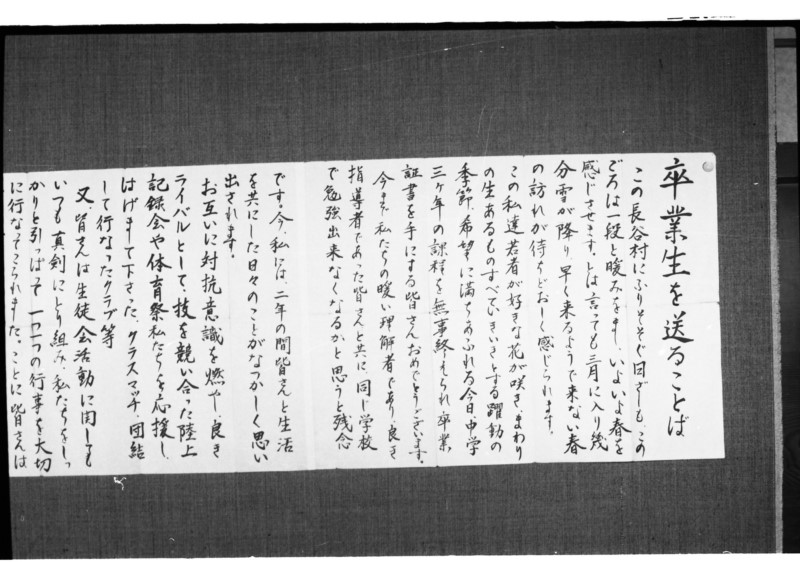 卒業生を送ることば
この長谷村にふりそそぐ日ざしも、この
ごろは一段と暖みをまし、いよいよ春を
感じさせます。とは言っても三月に入り幾
分雪が降り、早く来るようで来ない春
の訪れが待ちどおしく感じられます。
この私達若者が好きな花が咲きまわり
の生あるものすべていきいきとする躍動の
季節、希望に満ちあふれる今日、中学
三ヶ年の課程を無事終えられ卒業
証書を手にする皆さんおめでとうございます。
今まで私たちの暖い理解者であり、良き
指導者であった皆さんと共に、同じ学校
で勉強出来なくなるかと思うと残念
です。今、私には、二年の間皆さんと生活
を共にした日々のことがなつかしく思い
出されます。
お互いに対抗意識を燃やし、良き
ライバルとして、技を競い合った陸上
記録会や体育祭私たちを応援し、
はげまして下さった、クラスマッチ、団結
して行なったクラブ等
又、皆さんは生徒会活動に関しても
いつも真剣にとり組み、私たちをしっ
かりと引っぱって一つ一つの行事を大切
に行なってこられました。ことに皆さんは